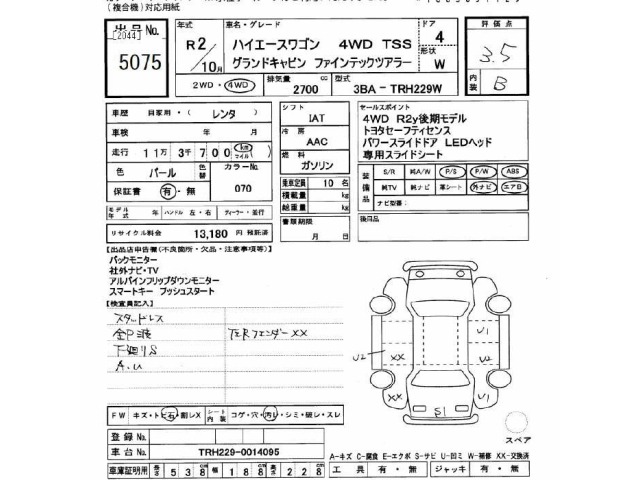 (複合機)対応用紙
出品 No.
[2044]
5075
年式
R2/10月
車名・グレード
ハイエースワゴン 4WD TSS
グランドキャビン ファインテックツアラー
ドア
4
形状
W
評価点
3.5
内装
B
2WD・4WD
排気量
2700 cc
型式
3BA - TRH229W
車歴
自家用・( レンタ )
車検
年 月
走行
11万 3千 700 km マイル
色
パール
色替
カラーNo.
070
保証書
有・無
モデル年式
年
ハンドル 左・右
ディーラー・並行
リサイクル料金
13,180 円 預託済
シフト
IAT
冷房
AAC
燃料
ガソリン
乗車定員 10 名
積載量 kg
総重量 kg
書類期限
月 日
セールスポイント
4WD R2y後期モデル
トヨタセーフティセンス
パワースライドドア LEDヘッド
専用スライドシート
装備品
S/R 純A/W P/S P/W ABS
純TV 純ナビ 革シート 外ナビ エアロ
ナビ型番:
後日品
【出品店申告欄(不良箇所・欠品・注意事項等)】
バックモニター
社外ナビ・TV
アルパインフリップダウンモニター
スマートキー プッシュスタート
【検査員記入】
スタッドレス
下廻りS
A.U
左Rフェンダー XX
U2
XX
XX
U1
U2
U1
S1
スペア
FW
キズ・トビ石・割レX
シート内装
コゲ・穴・汚レ・シミ・破レ・スレ
登録 No.
車台 No.
TRH229-0014095
A-キズ C-腐食 E-エクボ S-サビ U-凹ミ W-補修 XX-交換済
車庫証明用
長さ 538 幅 188 高さ 228
工具 有・無
ジャッキ 有・無